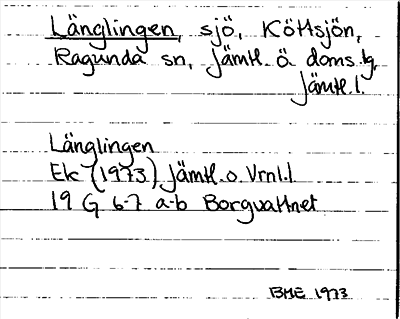 Länglingen, sjö, Köttsjön,
Ragunda sn, Jämtl. ö doms.tg,
Jämtl. l.
Länglingen
Ek (1973) Jämtl. o. Vrnl.l
19 G 6-7 a-b Borgvattnet
BME 1973